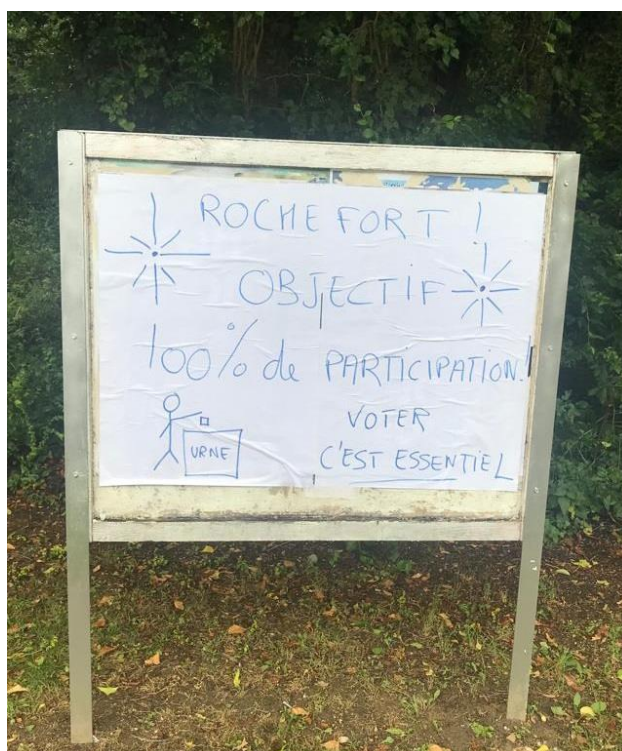 ROCHEFORT !
OBJECTIF
100% de PARTICIPATION!
VOTER
C'EST ESSENTIEL
URNE